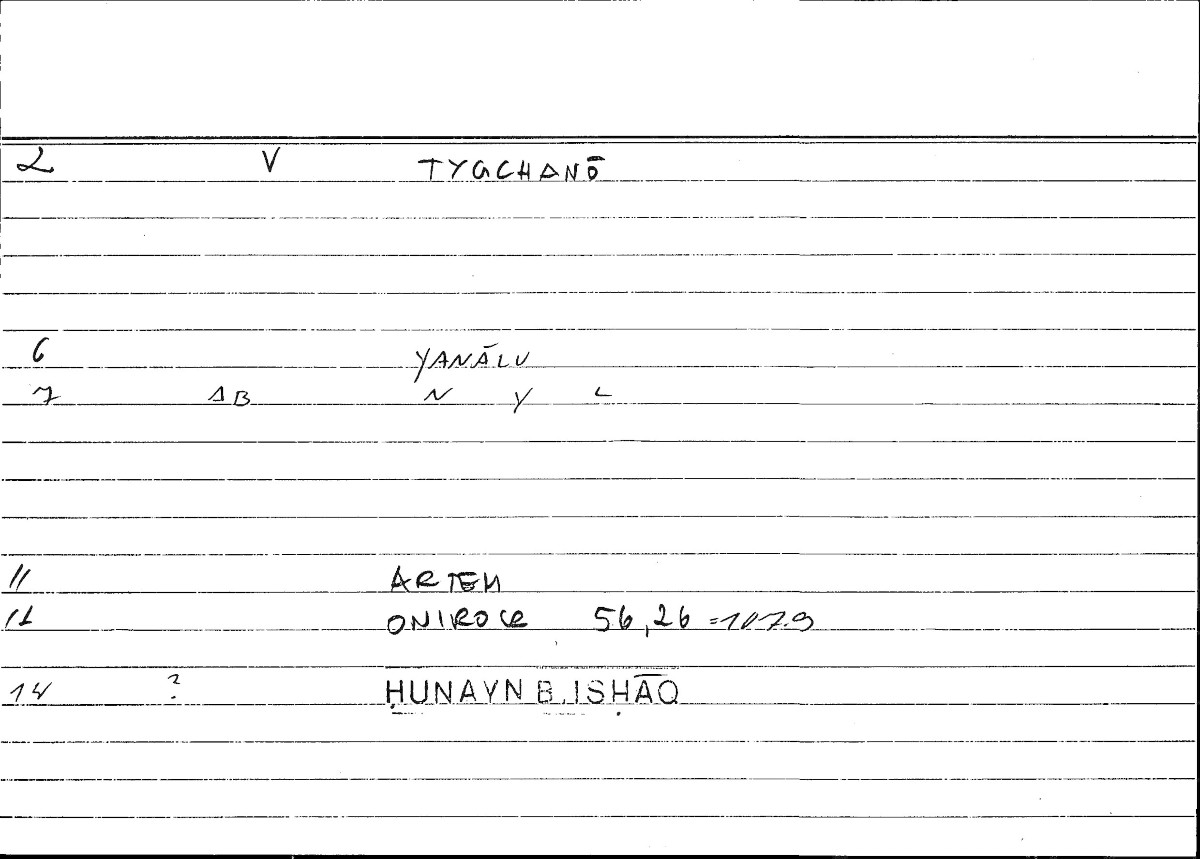 2 V TYGCHANŌ
6 YANĀLU
7 AB N Y L
11 ARTEM
12 ONIROCR 56,26 =107.9
14 ? ḤUNAYN B. ISḤĀQ